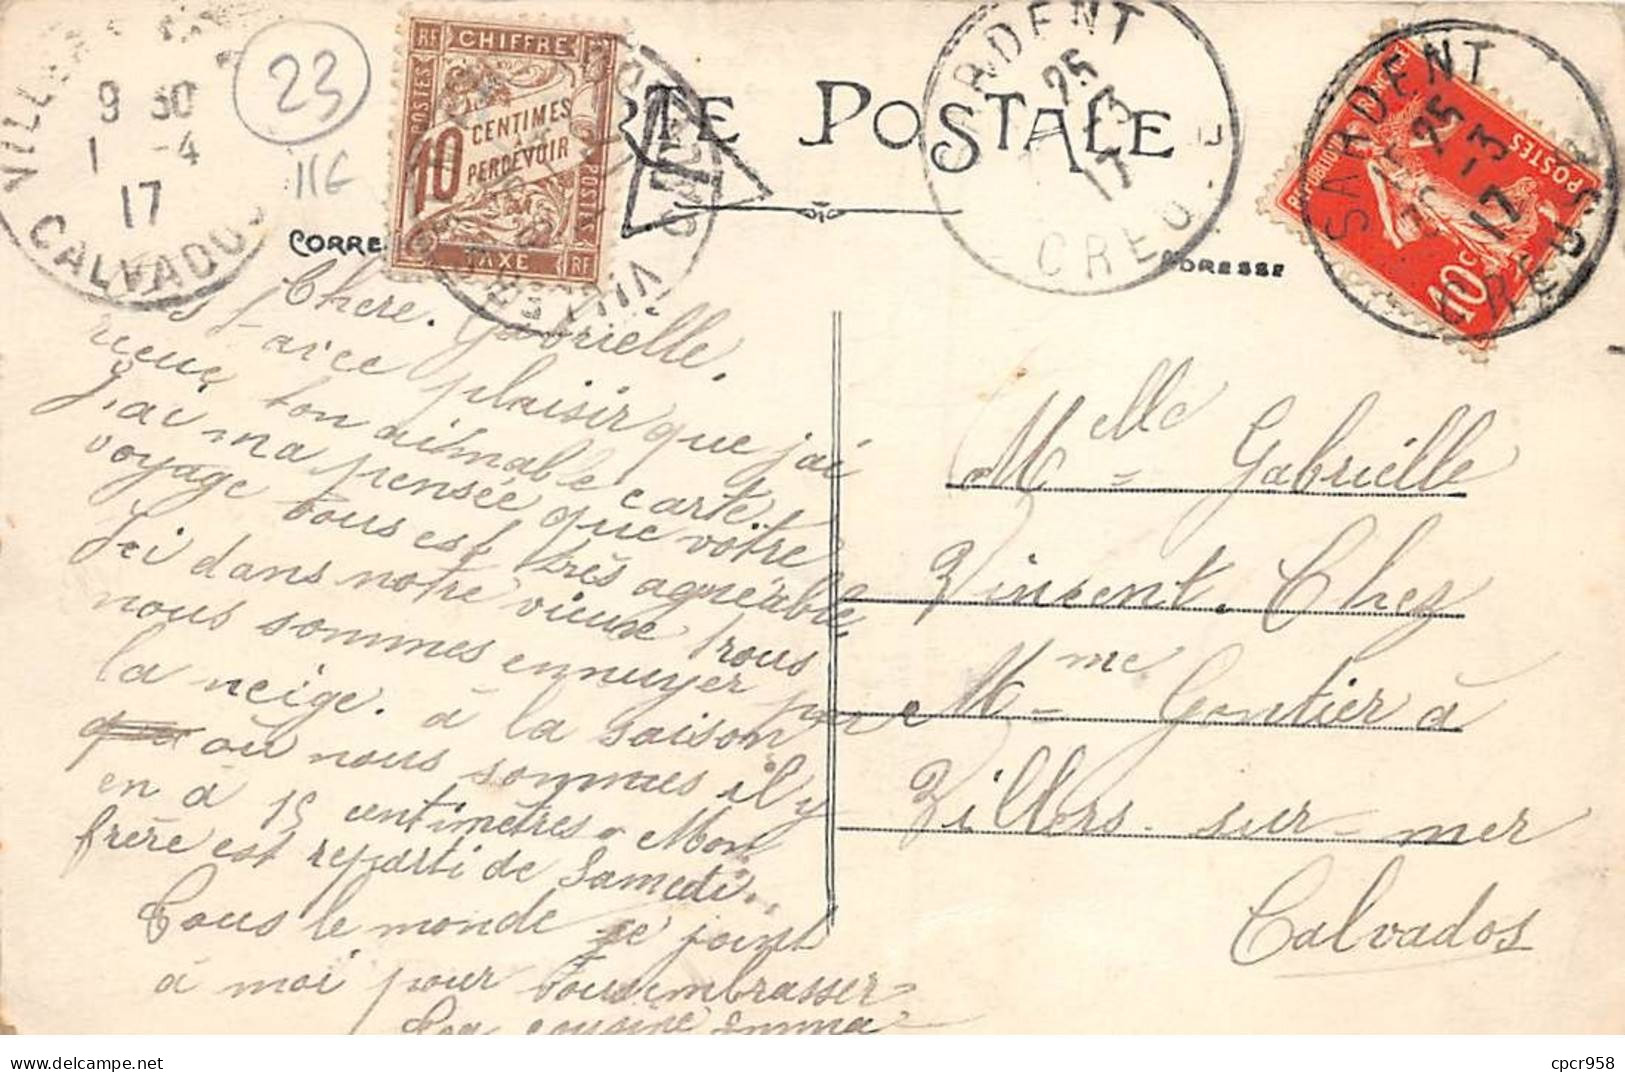 CARTE POSTALE
CORRE
ADRESSE
VILL
9 30
1 -4
17
CALVADOS
23
116
RF CHIFFRE RF
POSTES
10 CENTIMES
A PERCEVOIR
POSTES
TAXE RF
T
SARDENT
25
-3
17
CREUSE
SARDENT
15 25
-3
17
CREUSE
REPUBLIQUE FRANÇAISE
POSTES
10c
Chere. Gabrielle.
C'est avec plaisir que j'ai
reçue ton aimable carte,
J'ai ma pensée que votre
voyage tous est très agnéable.
Ici dans notre vieuse trous
nous sommes ennuyer par
la neige. à la saison
où nous sommes il y
en à 15 centimètres. Mon
frère est reparti de Samedi.
Tous le monde se joint
à moi pour tous embrasser
Ta cousine Emma
Melle Gabrielle
Vincent. Chez
Mme Gontier à
Villers-sur-mer
Calvados
delcampe.net
cpcr958